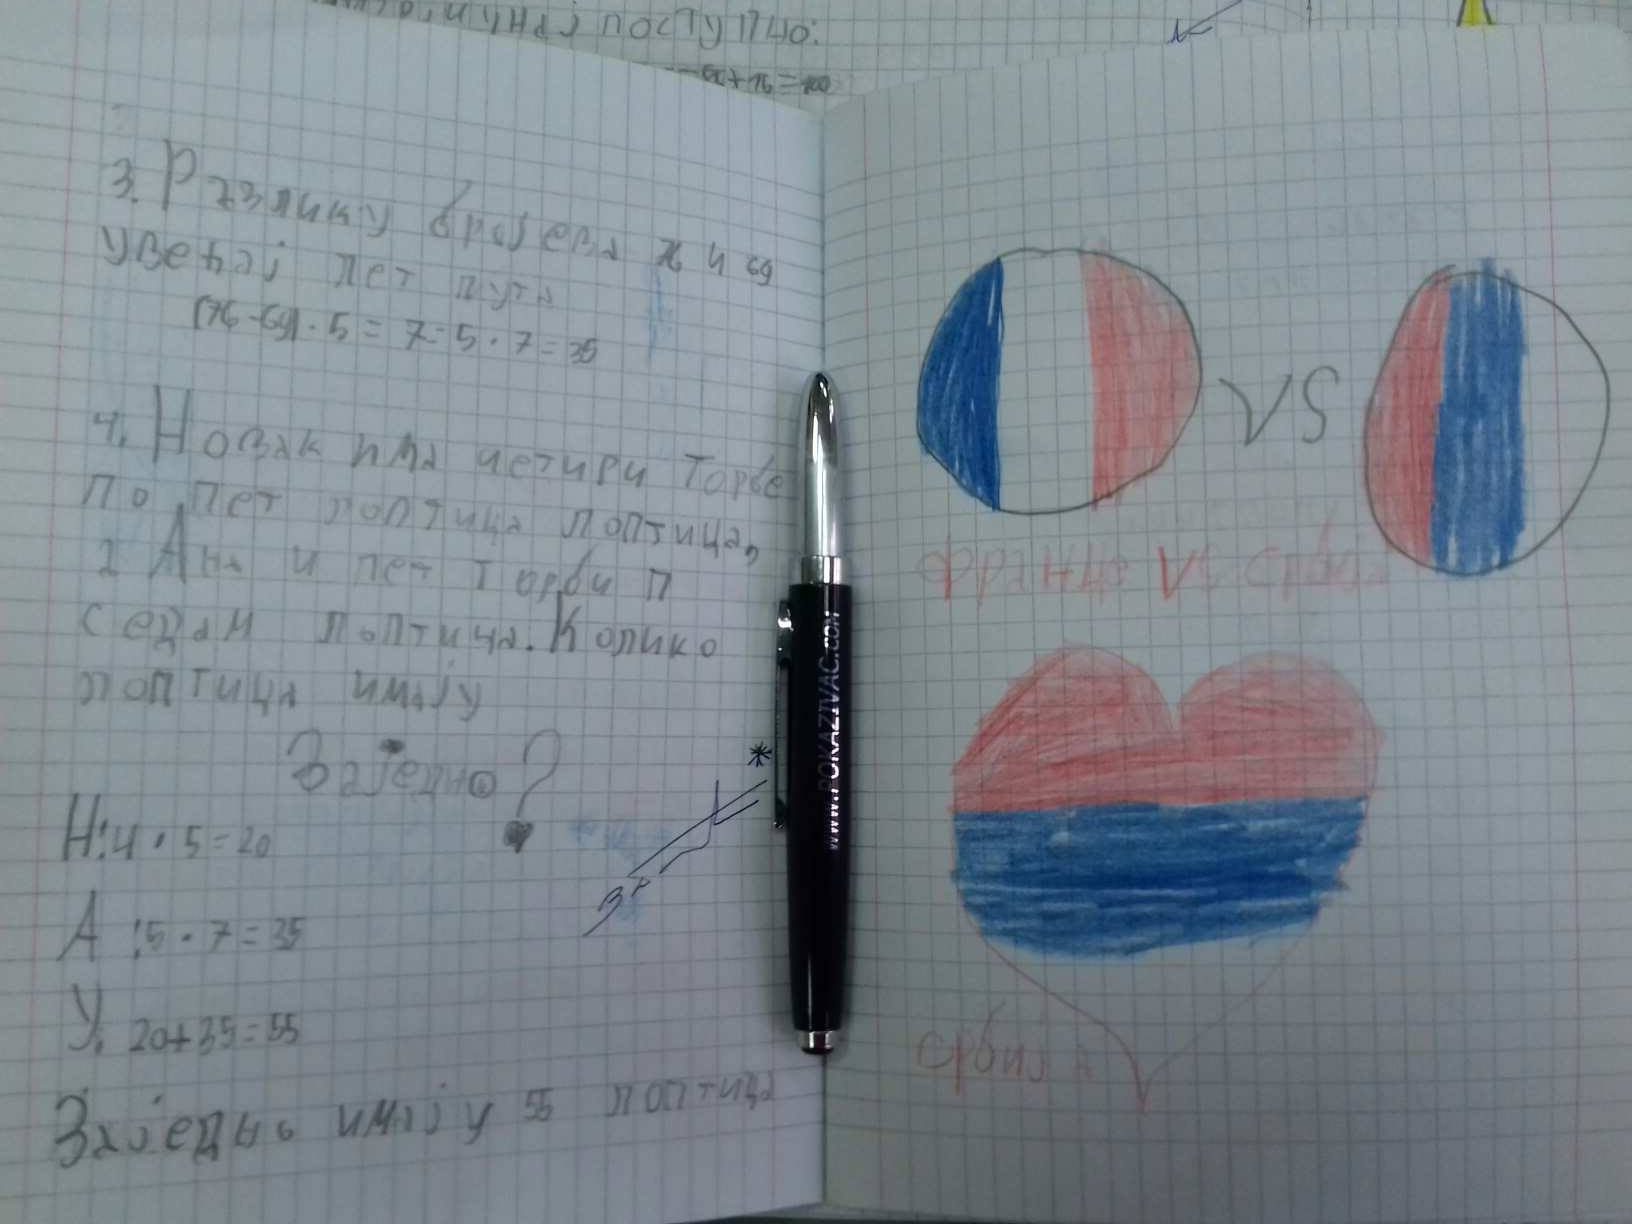 поступно:
3. Разлику бројева 76 и 69
увећај пет пута
(76-69) · 5 = 7 = 5 · 7 = 35
4. Новак има четири торбе
по пет лоптица лоптица,
а Ана и пет торби п
седам лоптица. Колико
лоптица имају
Заједно?
Н: 4 · 5 = 20
А : 5 · 7 = 35
У. 20+35=55
Заједно имају 55 лоптица
www.POKAZIVAC.com
VS
Француска VS Србија
србија